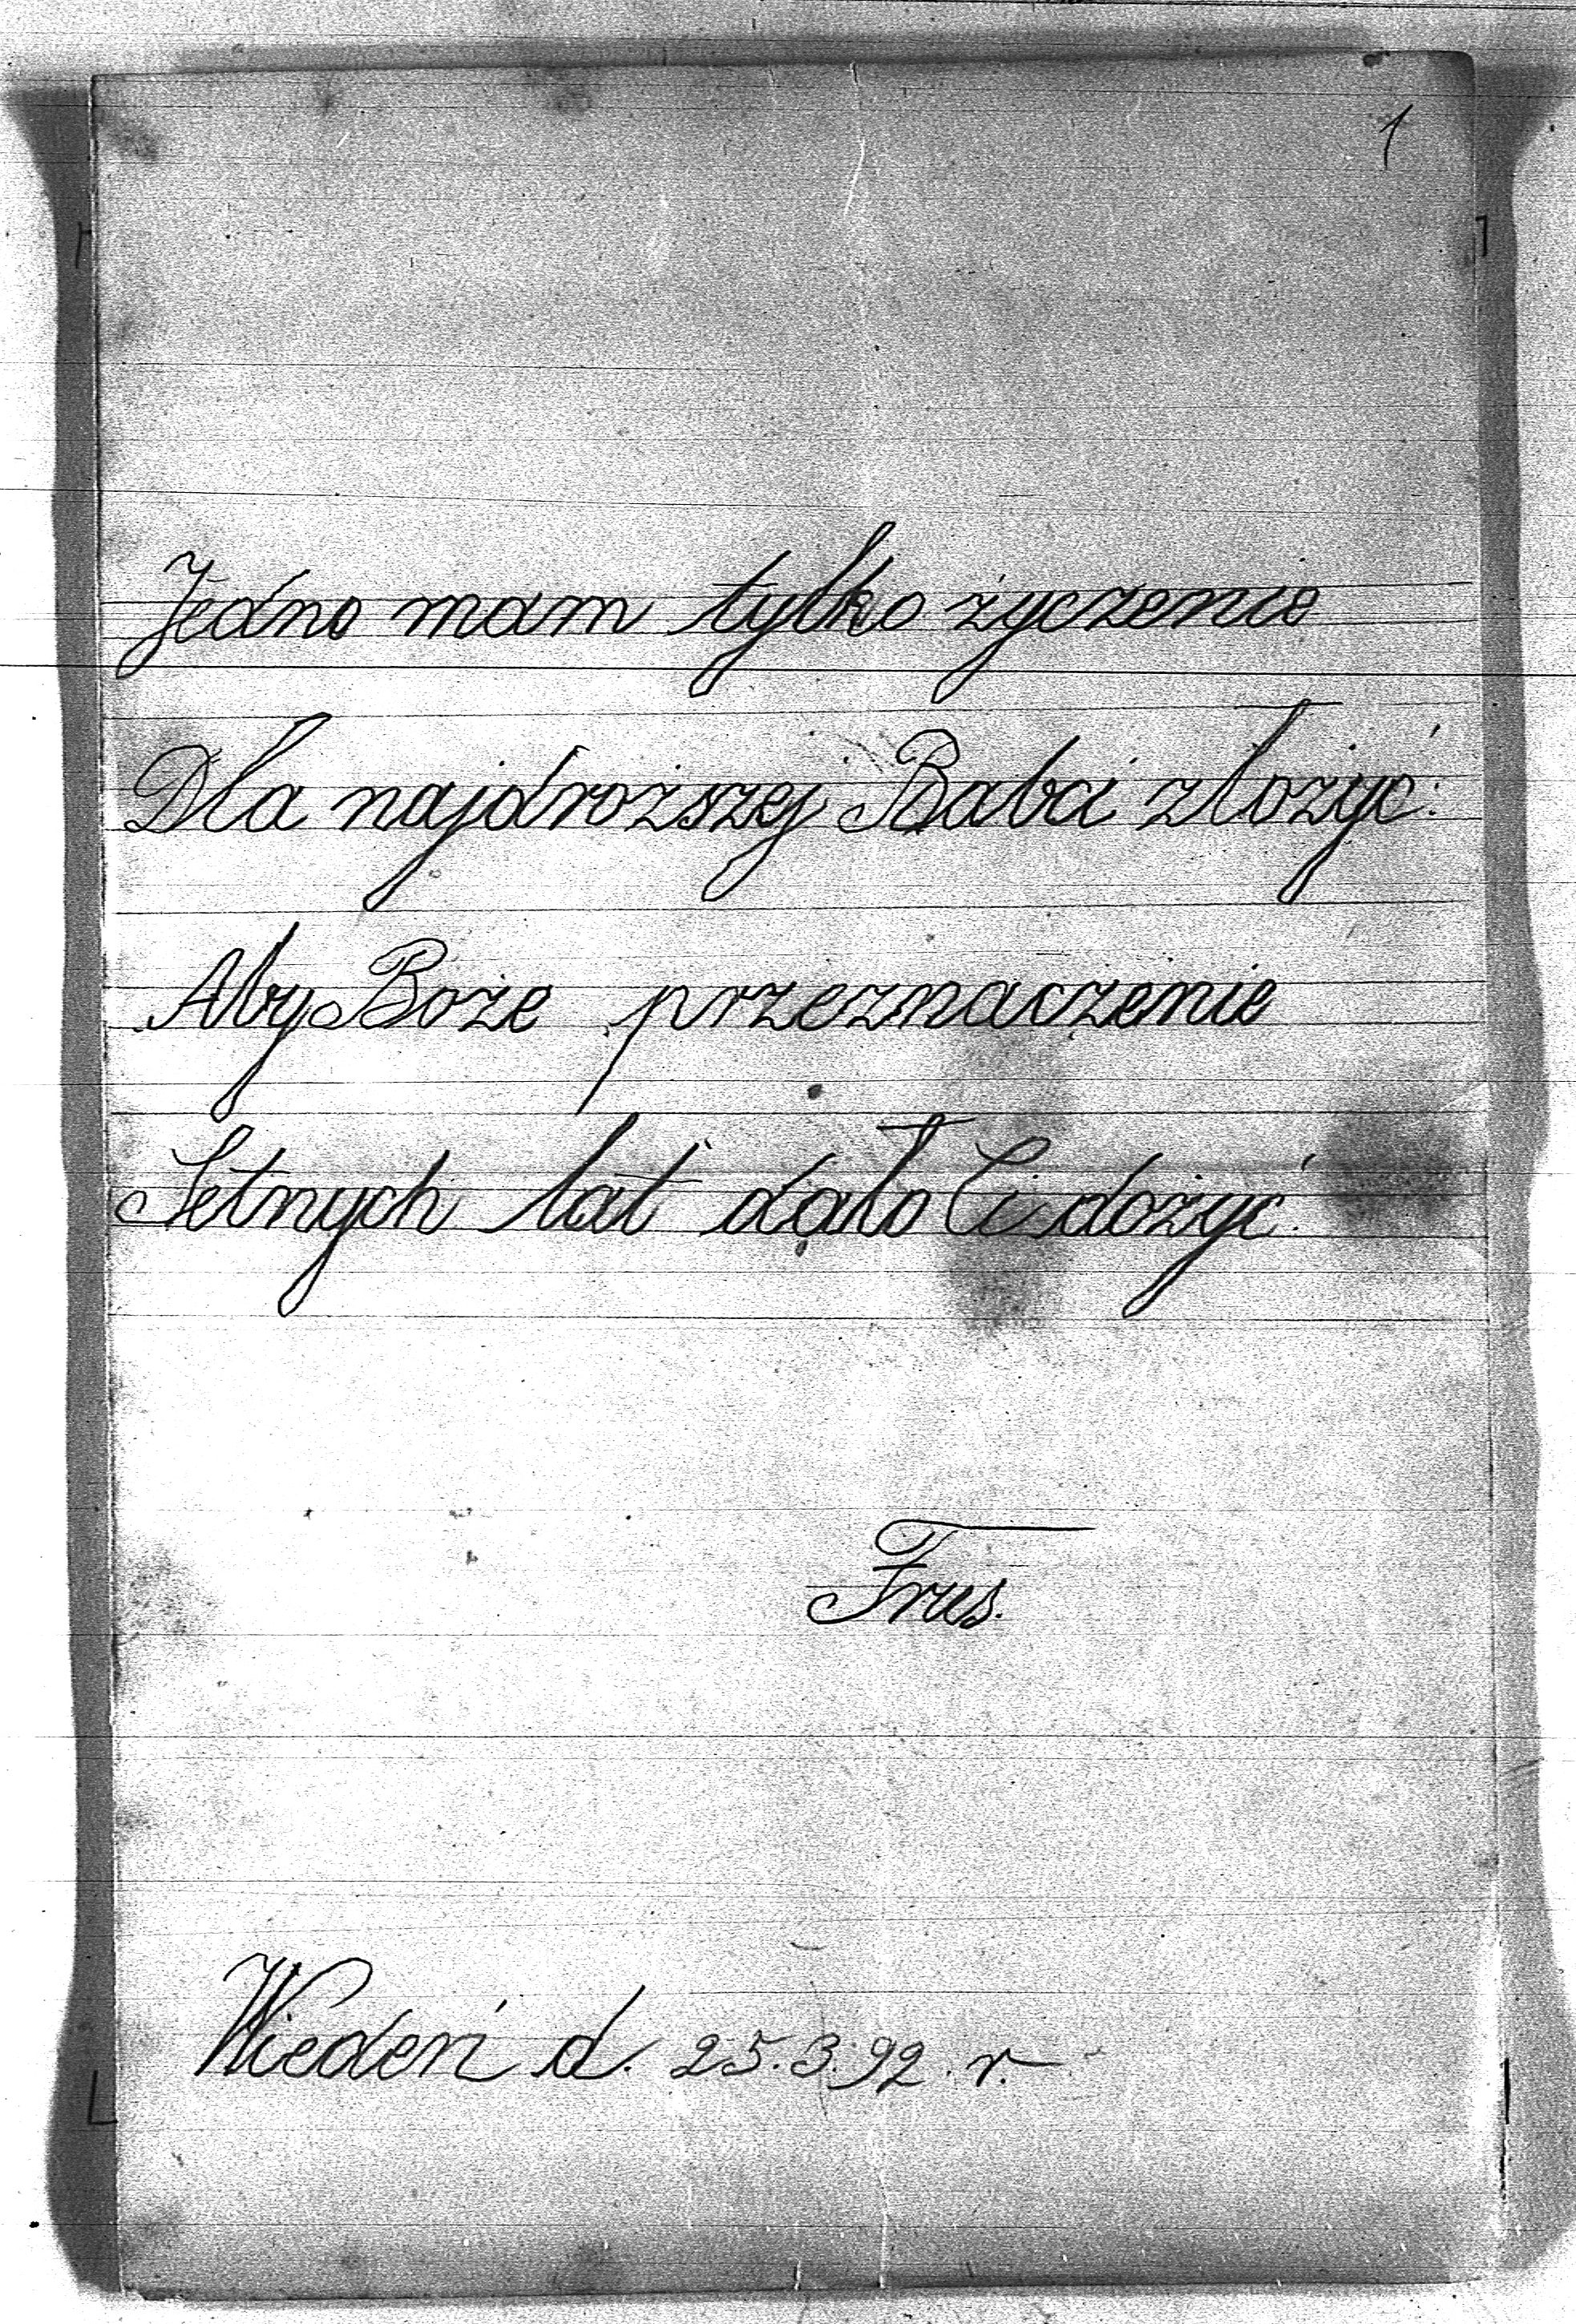 1
Jedno mam tylko życzenie
Dla najdroższej Babci złożyć:
Aby Boże przeznaczenie
Setnych lat dało Ci dożyć.
Frus.
Wiedeń d. 25.3.92. r.